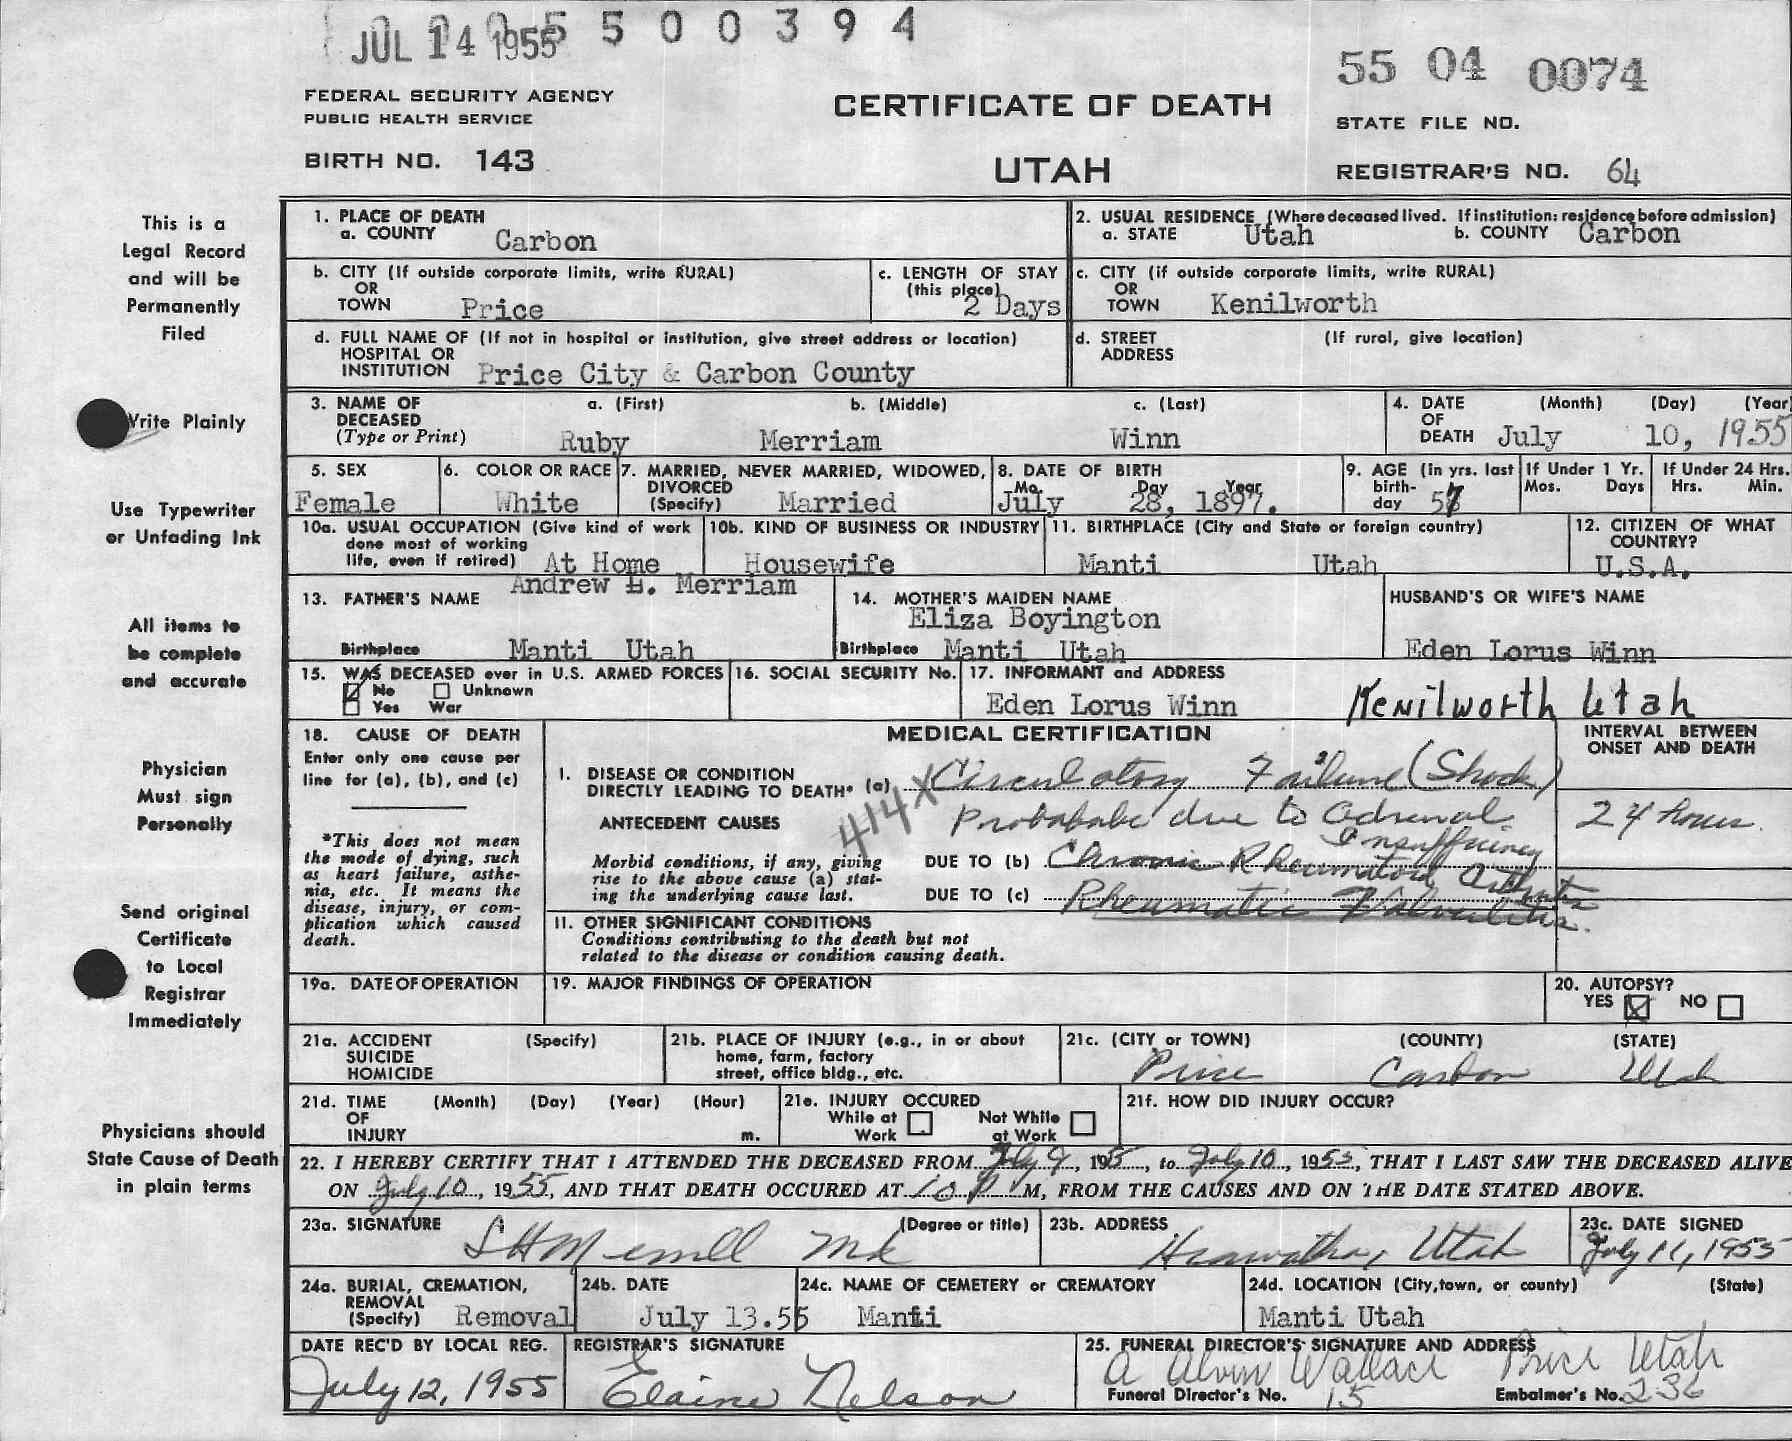 JUL 14 1955 5 5 0 0 3 9 4
55 04 0074
FEDERAL SECURITY AGENCY
PUBLIC HEALTH SERVICE
CERTIFICATE OF DEATH
STATE FILE NO.
BIRTH NO. 143
UTAH
REGISTRAR'S NO. 64
This is a
Legal Record
and will be
Permanently
Filed
Write Plainly
Use Typewriter
or Unfading Ink
All items to
be complete
and accurate
Physician
Must sign
Personally
Send original
Certificate
to Local
Registrar
Immediately
Physicians should
State Cause of Death
in plain terms
1. PLACE OF DEATH
a. COUNTY Carbon
2. USUAL RESIDENCE (Where deceased lived. If institution: residence before admission)
a. STATE Utah b. COUNTY Carbon
b. CITY (If outside corporate limits, write RURAL)
OR
TOWN Price
c. LENGTH OF STAY
(this place)
2 Days
c. CITY (if outside corporate limits, write RURAL)
OR
TOWN Kenilworth
d. FULL NAME OF (If not in hospital or institution, give street address or location)
HOSPITAL OR
INSTITUTION Price City & Carbon County
d. STREET (If rural, give location)
ADDRESS
3. NAME OF a. (First) b. (Middle) c. (Last)
DECEASED
(Type or Print) Ruby Merriam Winn
4. DATE (Month) (Day) (Year)
OF
DEATH July 10, 1955
5. SEX
Female
6. COLOR OR RACE
White
7. MARRIED, NEVER MARRIED, WIDOWED,
DIVORCED
(Specify) Married
8. DATE OF BIRTH
Mo. Day Year
July 28, 1897.
9. AGE (in yrs. last
birth-
day 57
If Under 1 Yr.
Mos. Days
If Under 24 Hrs.
Hrs. Min.
10a. USUAL OCCUPATION (Give kind of work
done most of working
life, even if retired) At Home
10b. KIND OF BUSINESS OR INDUSTRY
Housewife
11. BIRTHPLACE (City and State or foreign country)
Manti Utah
12. CITIZEN OF WHAT
COUNTRY?
U.S.A.
13. FATHER'S NAME Andrew E. Merriam
Birthplace Manti Utah
14. MOTHER'S MAIDEN NAME
Eliza Boyington
Birthplace Manti Utah
HUSBAND'S OR WIFE'S NAME
Eden Lorus Winn
15. WAS DECEASED ever in U.S. ARMED FORCES
No Unknown
Yes War
16. SOCIAL SECURITY No.
17. INFORMANT and ADDRESS
Eden Lorus Winn Kenilworth Utah
18. CAUSE OF DEATH
Enter only one cause per
line for (a), (b), and (c)
*This does not mean
the mode of dying, such
as heart failure, asthe-
nia, etc. It means the
disease, injury, or com-
plication which caused
death.
MEDICAL CERTIFICATION
INTERVAL BETWEEN
ONSET AND DEATH
I. DISEASE OR CONDITION
DIRECTLY LEADING TO DEATH* (a) Circulatory Failure (Shock)
414X
ANTECEDENT CAUSES Probabable due to Adrenal
Insufficiency
24 hours.
Morbid conditions, if any, giving
rise to the above cause (a) stat-
ing the underlying cause last.
DUE TO (b) Chronic Rheumatoid Arthritis
DUE TO (c) Rheumatic Valvulitis.
II. OTHER SIGNIFICANT CONDITIONS
Conditions contributing to the death but not
related to the disease or condition causing death.
19a. DATE OF OPERATION
19. MAJOR FINDINGS OF OPERATION
20. AUTOPSY?
YES NO
21a. ACCIDENT (Specify)
SUICIDE
HOMICIDE
21b. PLACE OF INJURY (e.g., in or about
home, farm, factory
street, office bldg., etc.
21c. (CITY or TOWN) (COUNTY) (STATE)
Price Carbon Utah
21d. TIME (Month) (Day) (Year) (Hour)
OF
INJURY m.
21e. INJURY OCCURED
While at Not While
Work at Work
21f. HOW DID INJURY OCCUR?
22. I HEREBY CERTIFY THAT I ATTENDED THE DECEASED FROM July 9, 1955, to July 10, 1955, THAT I LAST SAW THE DECEASED ALIVE
ON July 10, 1955, AND THAT DEATH OCCURED AT 10 P M, FROM THE CAUSES AND ON THE DATE STATED ABOVE.
23a. SIGNATURE (Degree or title)
23b. ADDRESS
Hiawatha, Utah
23c. DATE SIGNED
July 11, 1955
24a. BURIAL, CREMATION,
REMOVAL
(Specify) Removal
24b. DATE
July 13.55
24c. NAME OF CEMETERY or CREMATORY
Manti
24d. LOCATION (City,town, or county) (State)
Manti Utah
DATE REC'D BY LOCAL REG.
July 12, 1955
REGISTRAR'S SIGNATURE
Elaine Nelson
25. FUNERAL DIRECTOR'S SIGNATURE AND ADDRESS
A Alvin Wallace Price Utah
Funeral Director's No. 15 Embalmer's No. 236